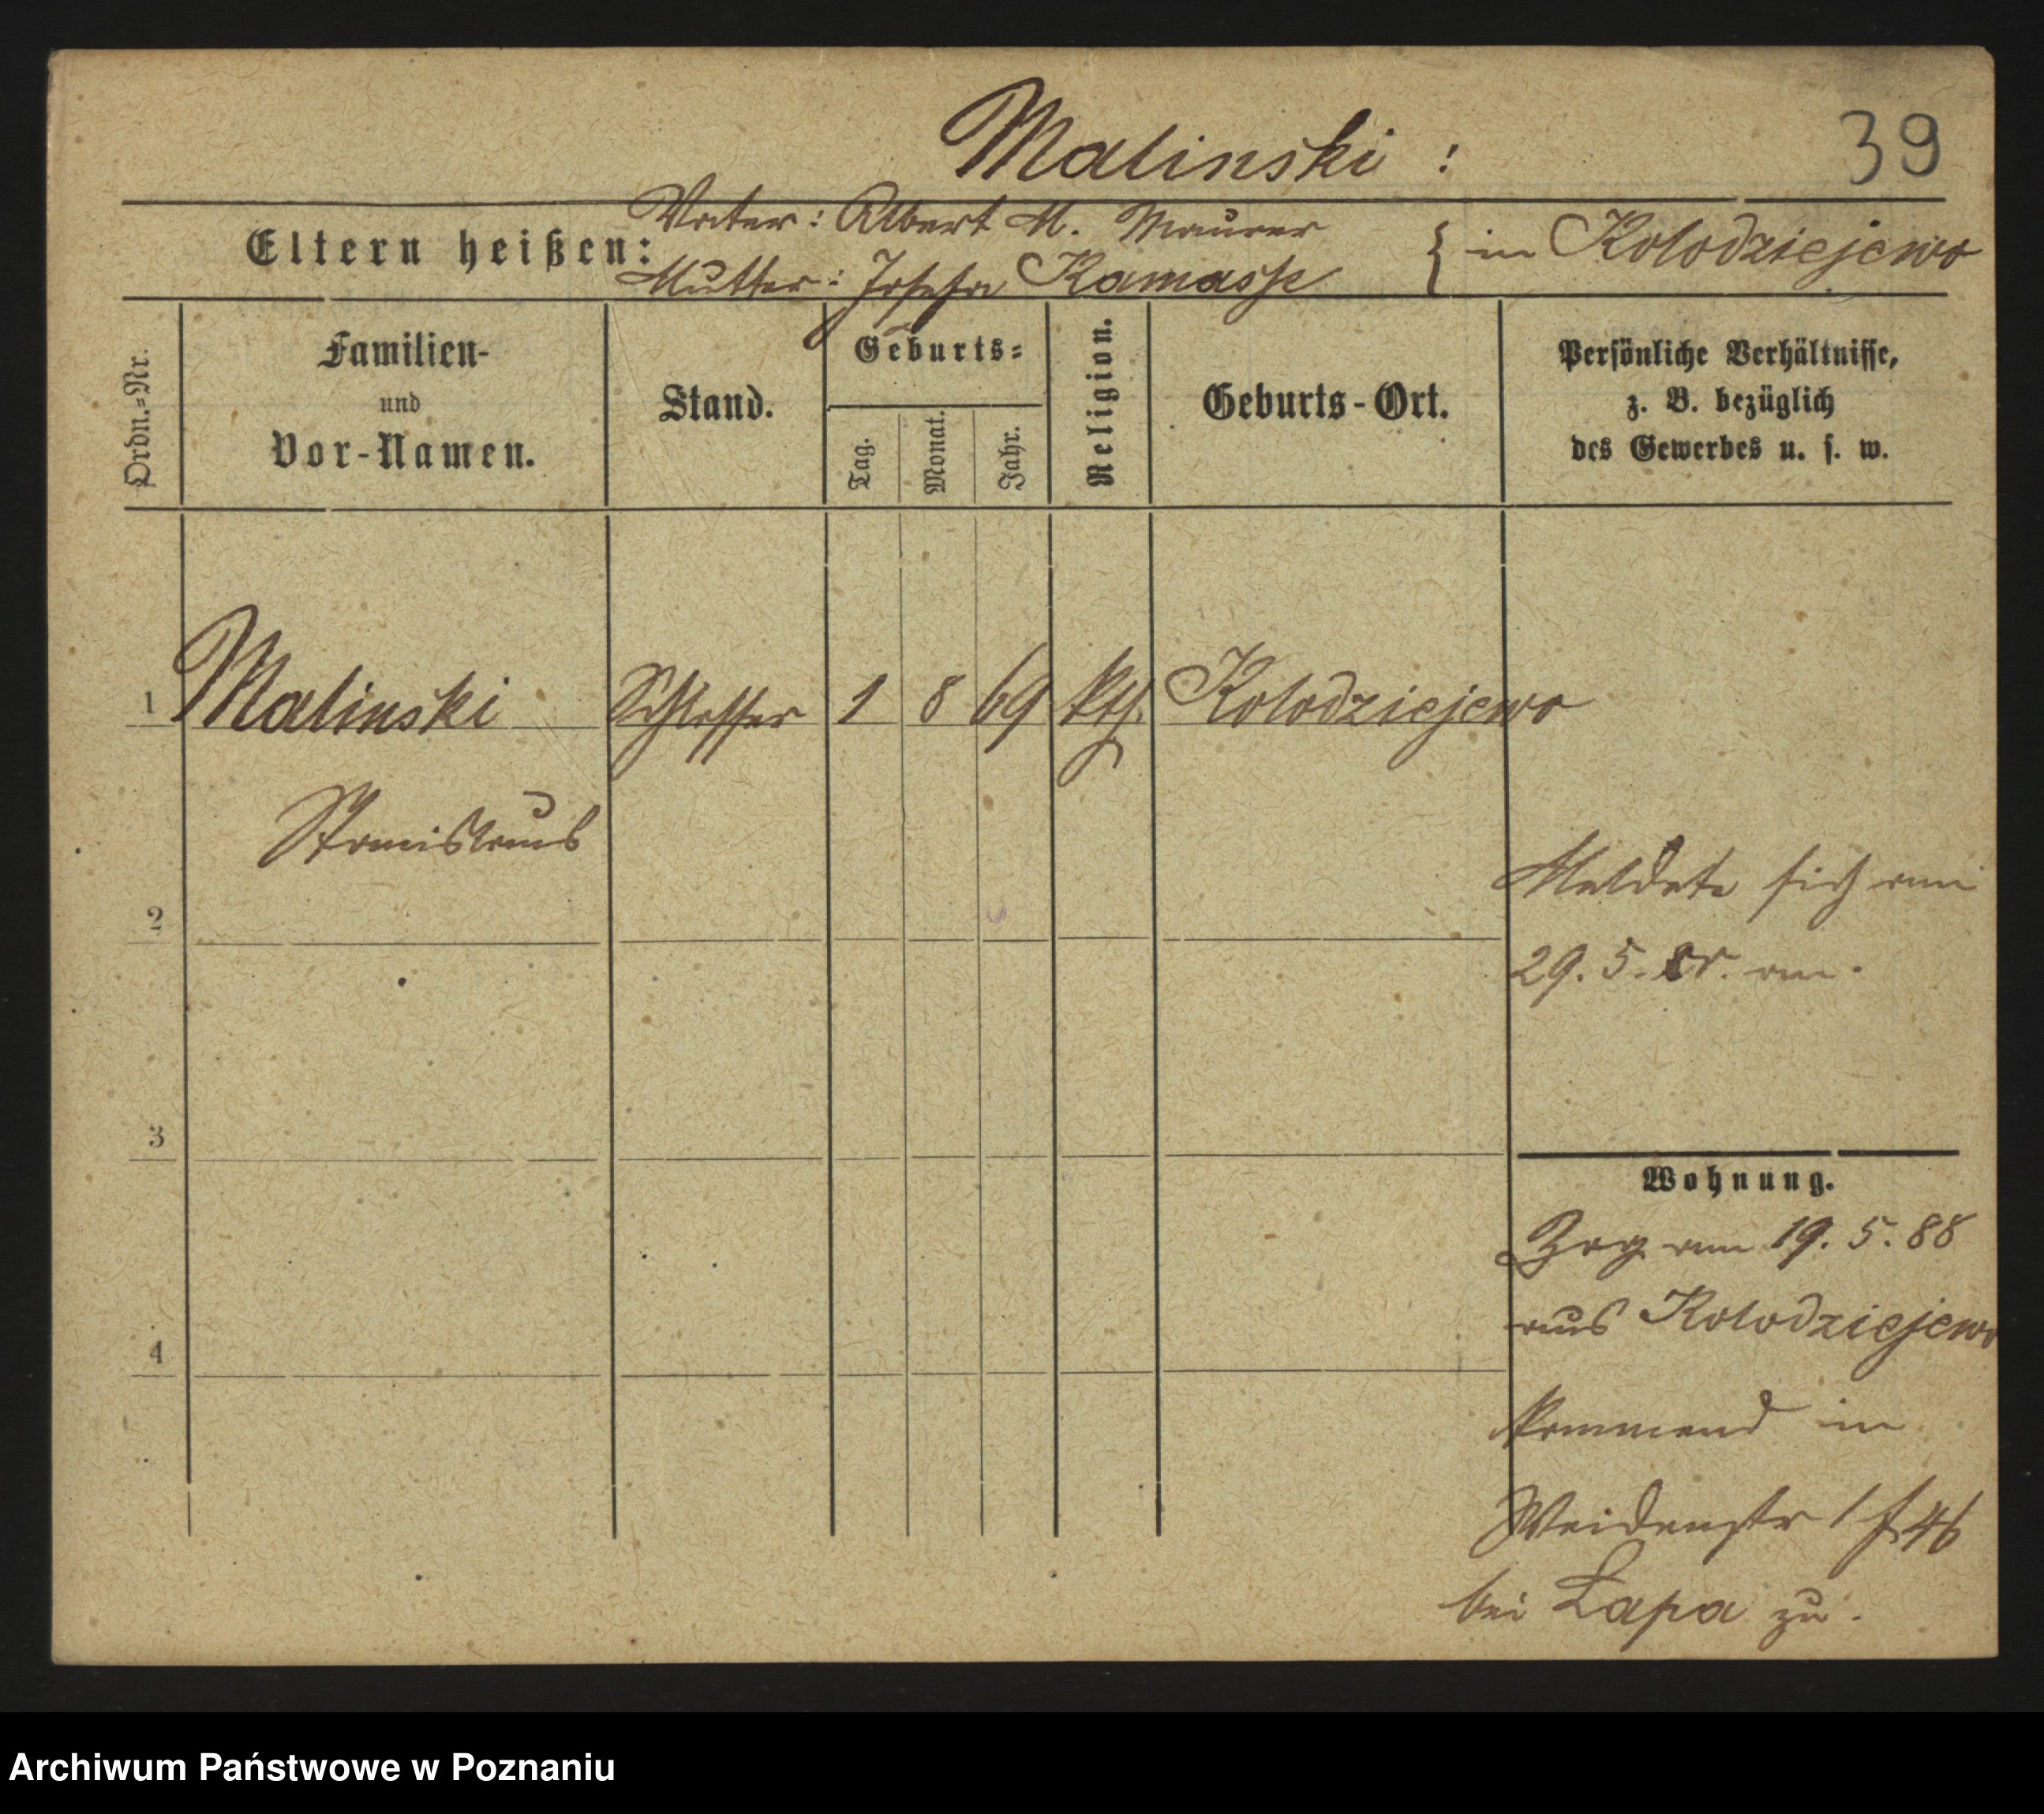 Malinski :
39
Vater: Albert M. Maurer
Eltern heißen:
{ in Kolodziejewo
Mutter: Josefa Kamasse
Ordn.=Nr.
Familien-
und
Vor-Namen.
Stand.
Geburts=
Tag.
Monat.
Jahr.
Religion.
Geburts-Ort.
Persönliche Verhältnisse,
z. B. bezüglich
des Gewerbes u. s. w.
1 Malinski Schlosser 1 8 69 kth. Kolodziejewo
Stanislaus
Meldete sich am
2
29. 5. cr. an.
3
Wohnung.
Zog am 19. 5. 88
aus Kolodziejewo
4
kommend in
Weidenstr 1
bei Lapa zu.
Archiwum Państwowe w Poznaniu